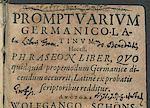 PROMPTVARIVM
GERMANICO-LA-
TINVM,
Hoc est,
PHRASEON LIBER, QVO
quicquid propemodum Germanice di-
cendum occurrit, Latine ex probatis
scriptoribus redditur.
WOLFGANGO